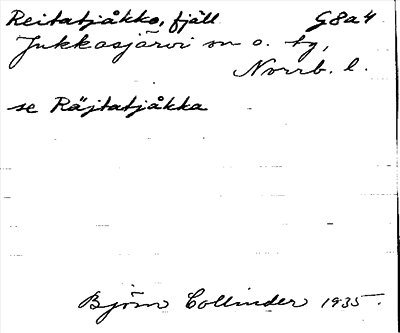 Reitatjåkko, fjäll G8a4
Jukkasjärvi sn o. tg,
Norrb. l.
se Räjtatjåkka
Björn Collinder 1935.